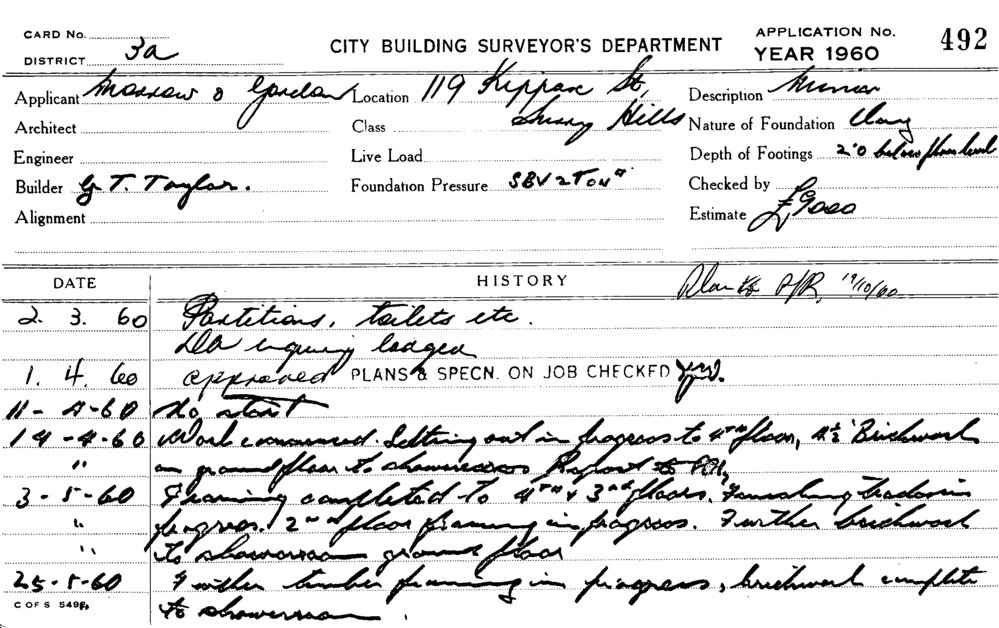 CARD No.
DISTRICT 3a
CITY BUILDING SURVEYOR'S DEPARTMENT
APPLICATION No. 492
YEAR 1960
Applicant Marrow & Gordon
Location 119 Kippax St,
Surry Hills
Description Minor
Architect
Class
Nature of Foundation Clay
Engineer
Live Load
Depth of Footings 2'0 below floor level
Builder G T. Taylor.
Foundation Pressure SBV 2 Ton
Checked by
Alignment
Estimate
DATE
HISTORY
19/10/60
2. 3. 60 Partitions, toilets etc.
DA enquiry lodged
1. 4. 60 approved PLANS & SPECN. ON JOB CHECKED
11-4-60 No start
14-4-60 Work commenced. Setting out in progress to 4th floor, 4½" Brickwork
" on ground floor to showrooms Report to
3-5-60 Framing completed to 4th & 3rd floors. Finishing trades in
" progress. 2nd floor framing in progress. Further brickwork
" to showroom ground floor
25-5-60 Further timber framing in progress, brickwork complete
to showroom.
C OF S